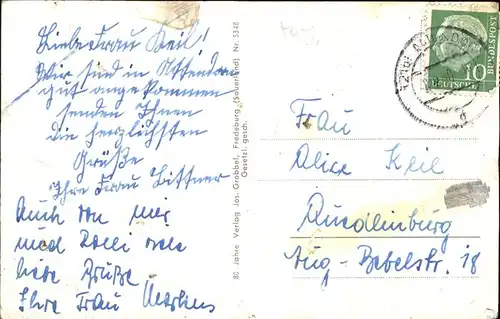 Liebe Frau Keil!
Wir sind in Attendorn
gut angekommen
senden Ihnen
die herzlichsten
Grüße
Ihre Frau Bittner
Auch von mir
und viele
liebe Grüße
Ihre Frau
80 Jahre Verlag Jos. Grobbel, Fredeburg (Sauerland) Nr. 5348
Gesetzl. gesch.
DEUTSCHE BUNDESPOST
10
Frau
Alice Keil
Quedlinburg
Aug.-Bebelstr. 18